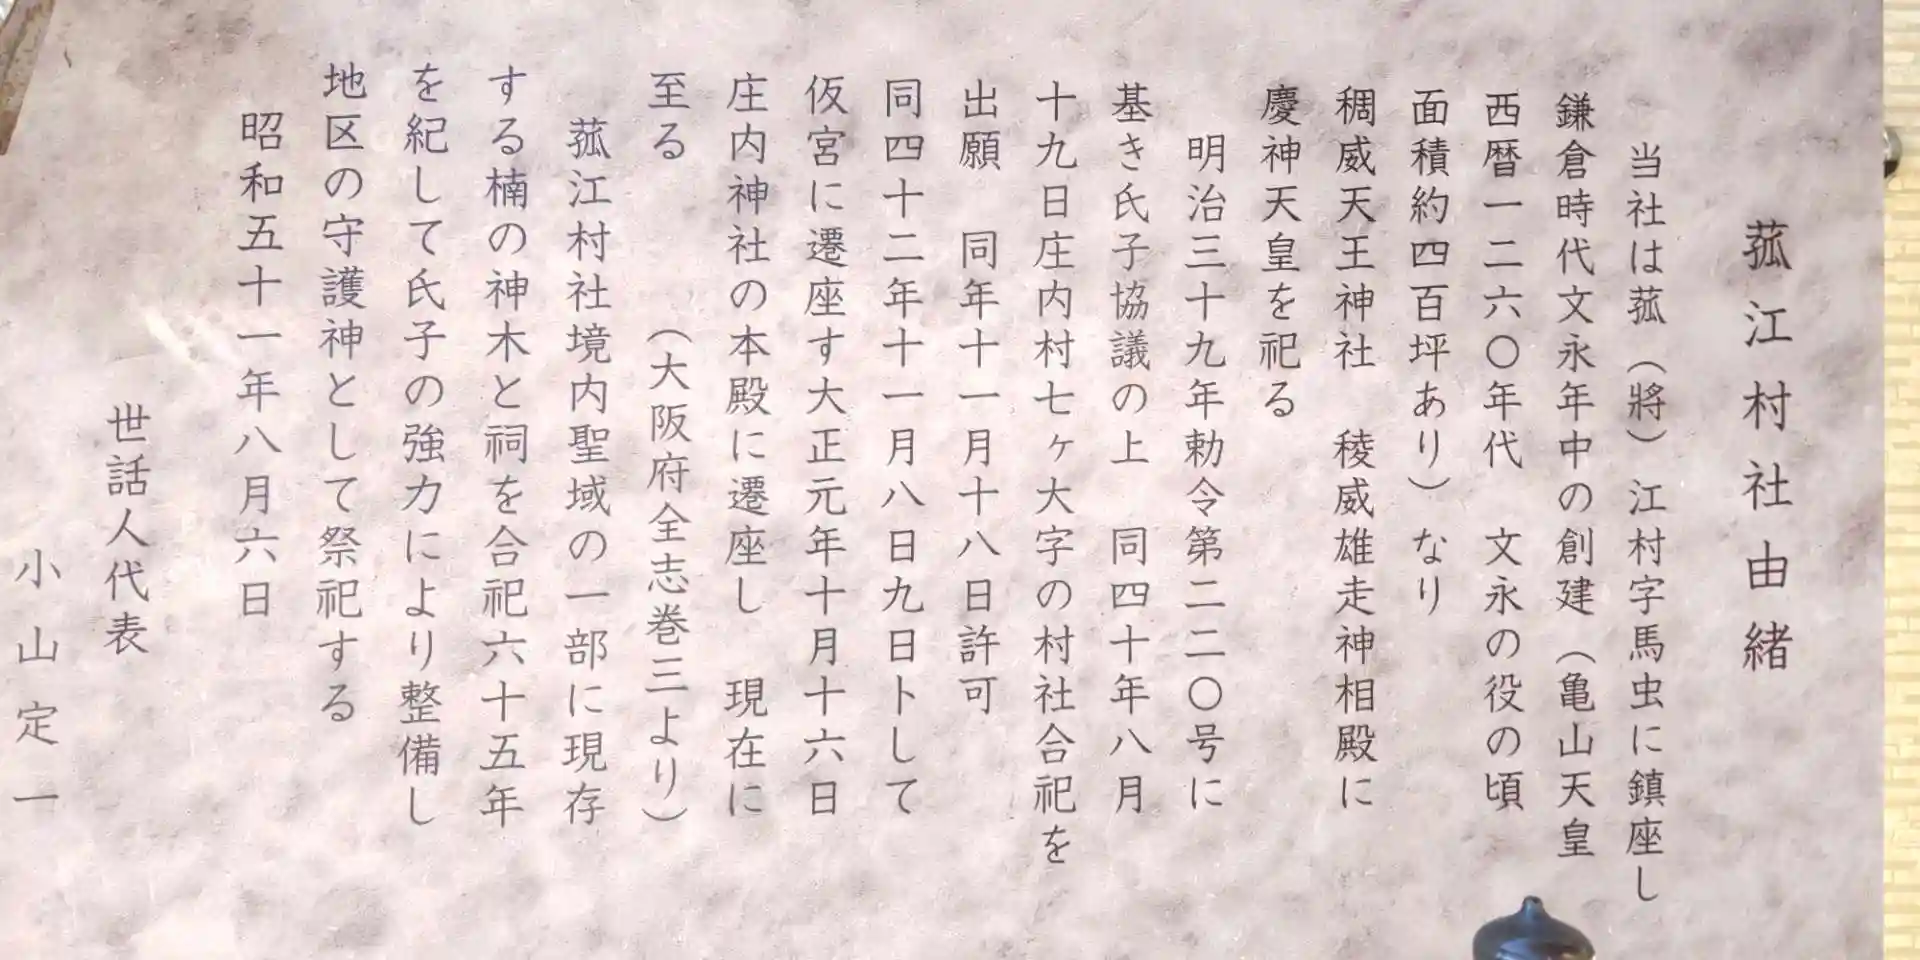 菰江村社由緒
当社は菰（將）江村字馬虫に鎮座し
鎌倉時代文永年中の創建（亀山天皇
西暦一二六〇年代　文永の役の頃
面積約四百坪あり）なり
稠威天王神社　稜威雄走神相殿に
慶神天皇を祀る
明治三十九年勅令第二二〇号に
基き氏子協議の上　同四十年八月
十九日庄内村七ヶ大字の村社合祀を
出願　同年十一月十八日許可
同四十二年十一月八日九日トして
仮宮に遷座す大正元年十月十六日
庄内神社の本殿に遷座し　現在に
至る　　　（大阪府全志巻三より）
菰江村社境内聖域の一部に現存
する楠の神木と祠を合祀六十五年
を紀して氏子の強力により整備し
地区の守護神として祭祀する
昭和五十一年八月六日
世話人代表
小山定一